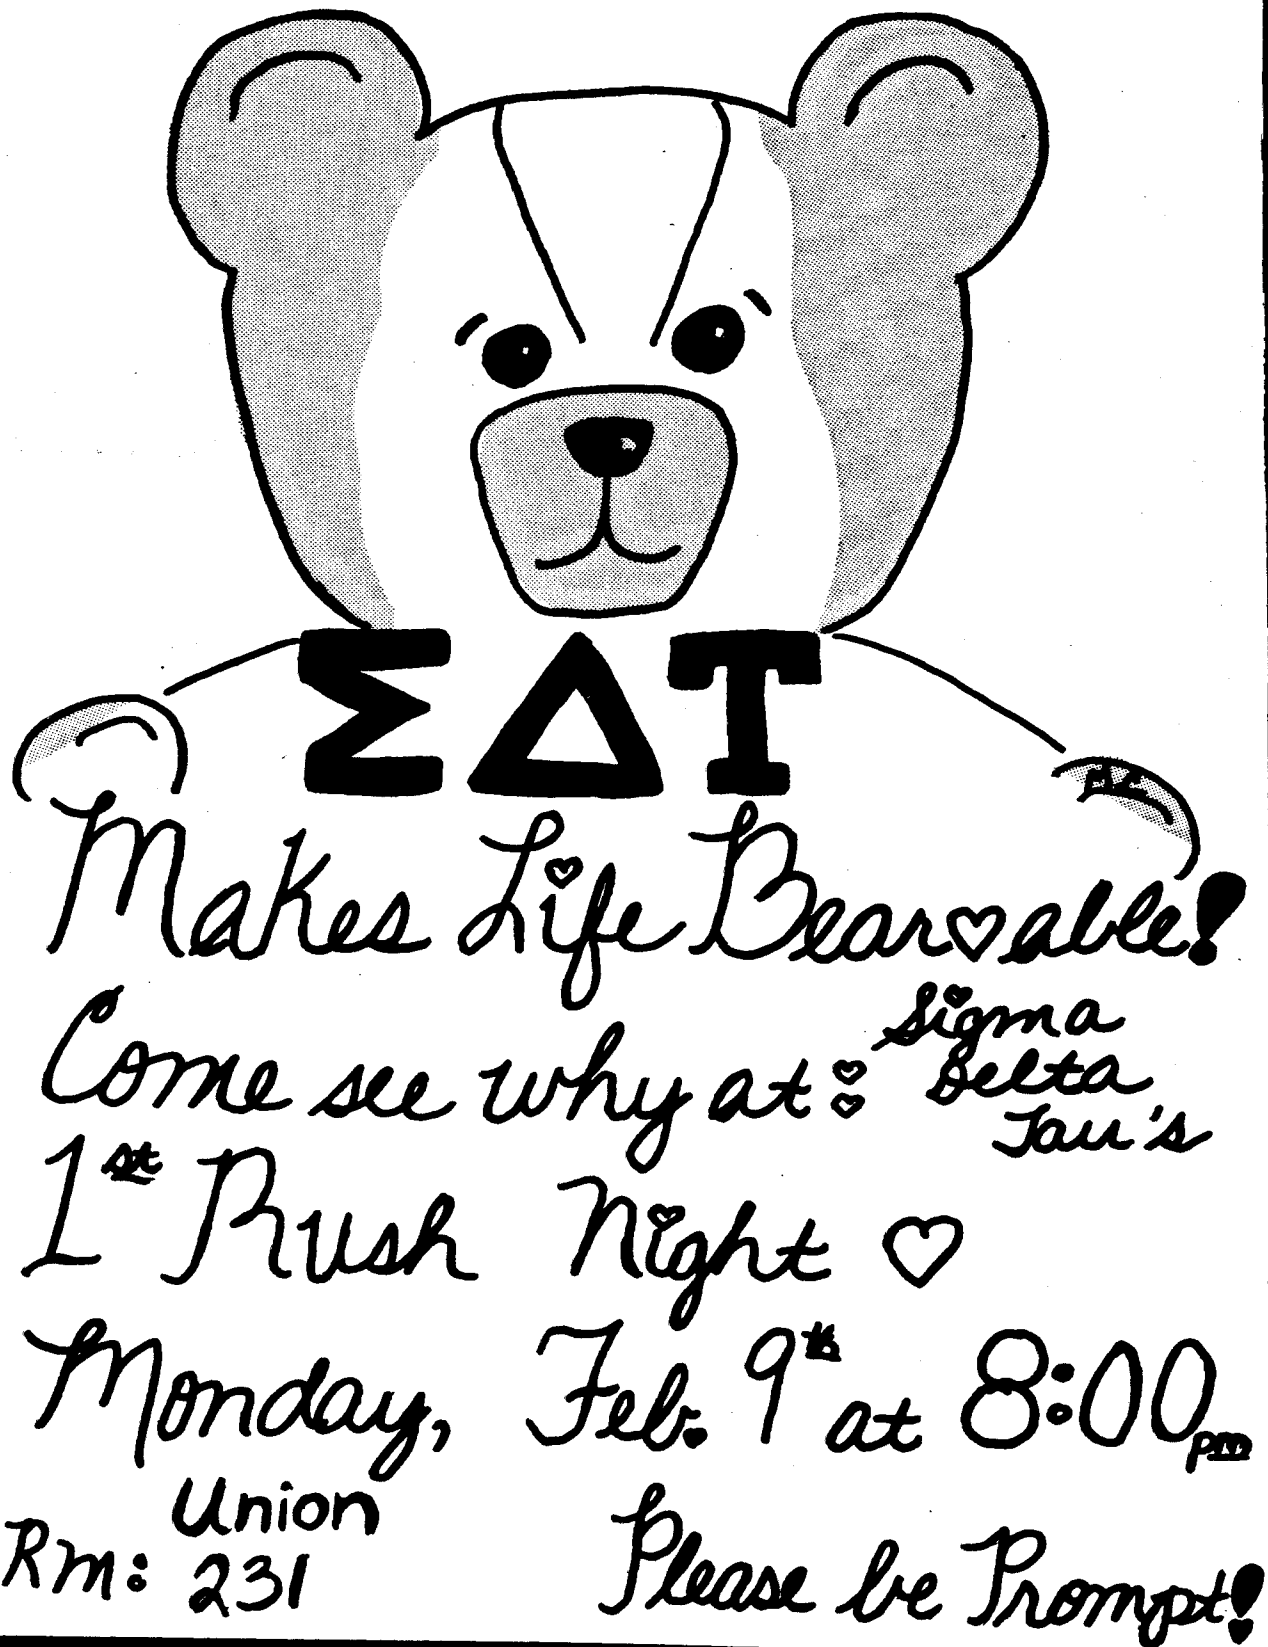 ΣΔΤ
Makes Life Bear♡able!
Come see why at: Sigma
Delta
Tau's
1st Rush Night ♡
Monday, Feb. 9th at 8:00 pm
Union
Rm: 231
Please be Prompt!